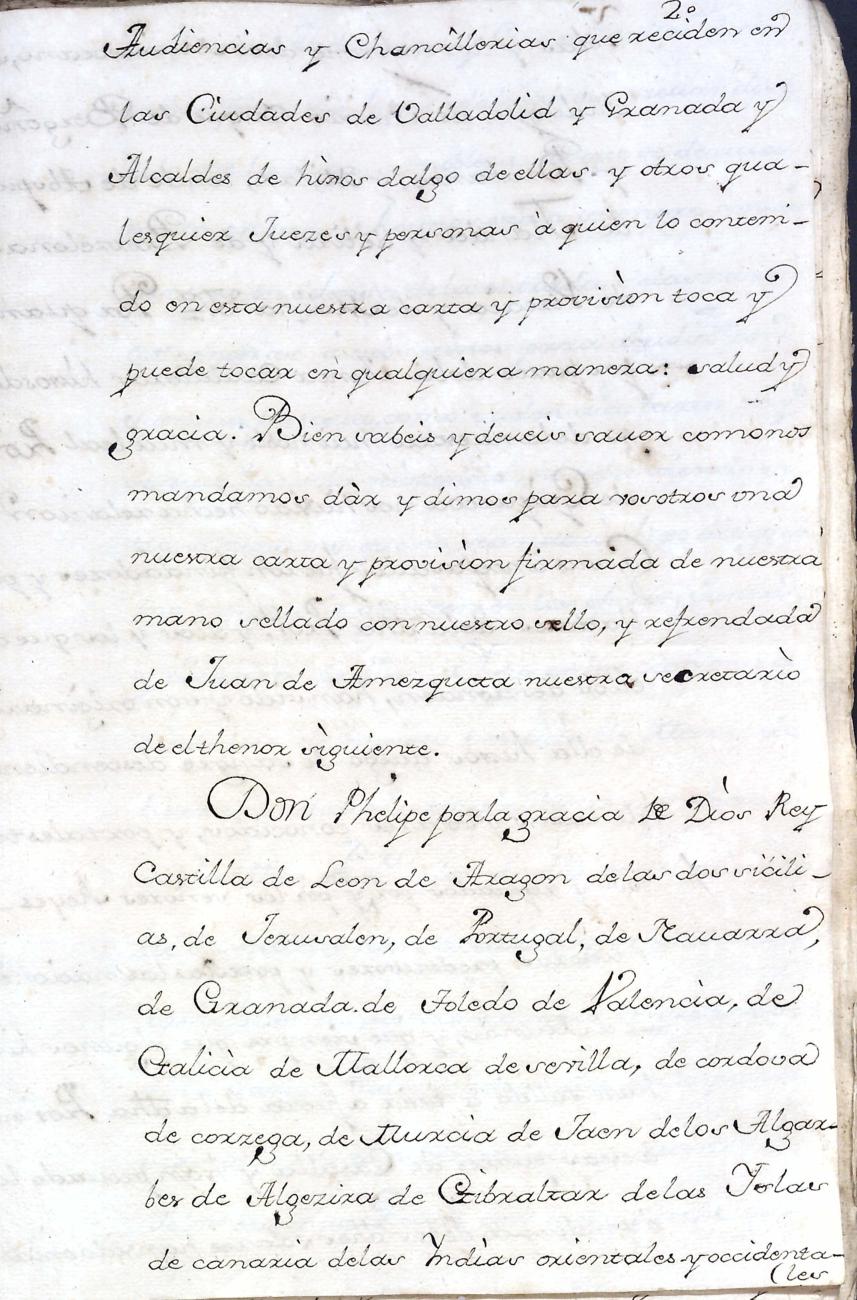 2º
Audiencias y Chancillerias que reciden en
las Ciudades de Valladolid y Granada y
Alcaldes de hixos dalgo de ellas y otros qua-
lesquier Juezes y personas à quien lo conteni-
do en esta nuestra carta y provisìon toca y
puede tocàr en qualquiera manera: salud y
gracia. Bien sabeis y deveis savor comonos
mandamos dàr y dimos para vosotros una
nuestra carta y provisìon firmada de nuestra
mano sellado con nuestro sello, y refrendada
de Juan de Amezqueta nuestra secretarìo
de el thenor sìguiente.
Don Phelipe por la gracia De Dìos Rey
Castilla de Leon de Aragon de las dos sicili-
as, de Jerusalen, de Portugal, de Navarra,
de Granada. de Toledo de Valencìa, de
Galicìa de Mallorca de sevilla, de cordova
de corzega, de Murcìa de Jaen de los Algar-
bes de Algezira de Gibraltar de las Yslas
de canaria de las Yndìas orientales y occidenta-
(les